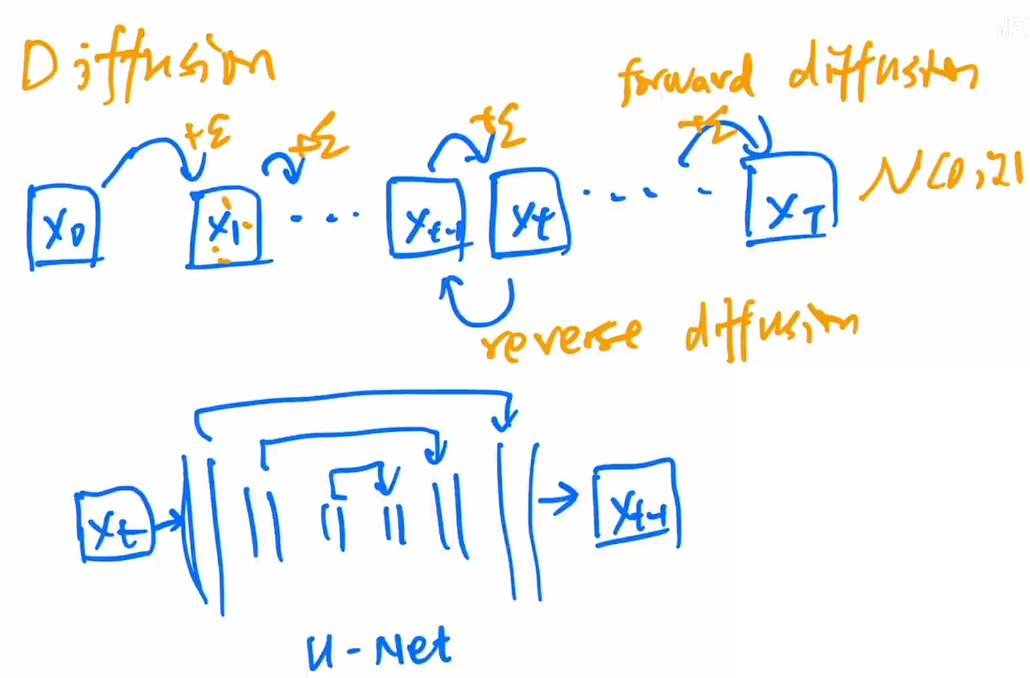 Diffusion
forward diffusion
+ε +ε +ε +ε
X0 X1 ... Xt-1 Xt .... XT N(0,2)
reverse diffusion
Xt Xt-1
U-Net